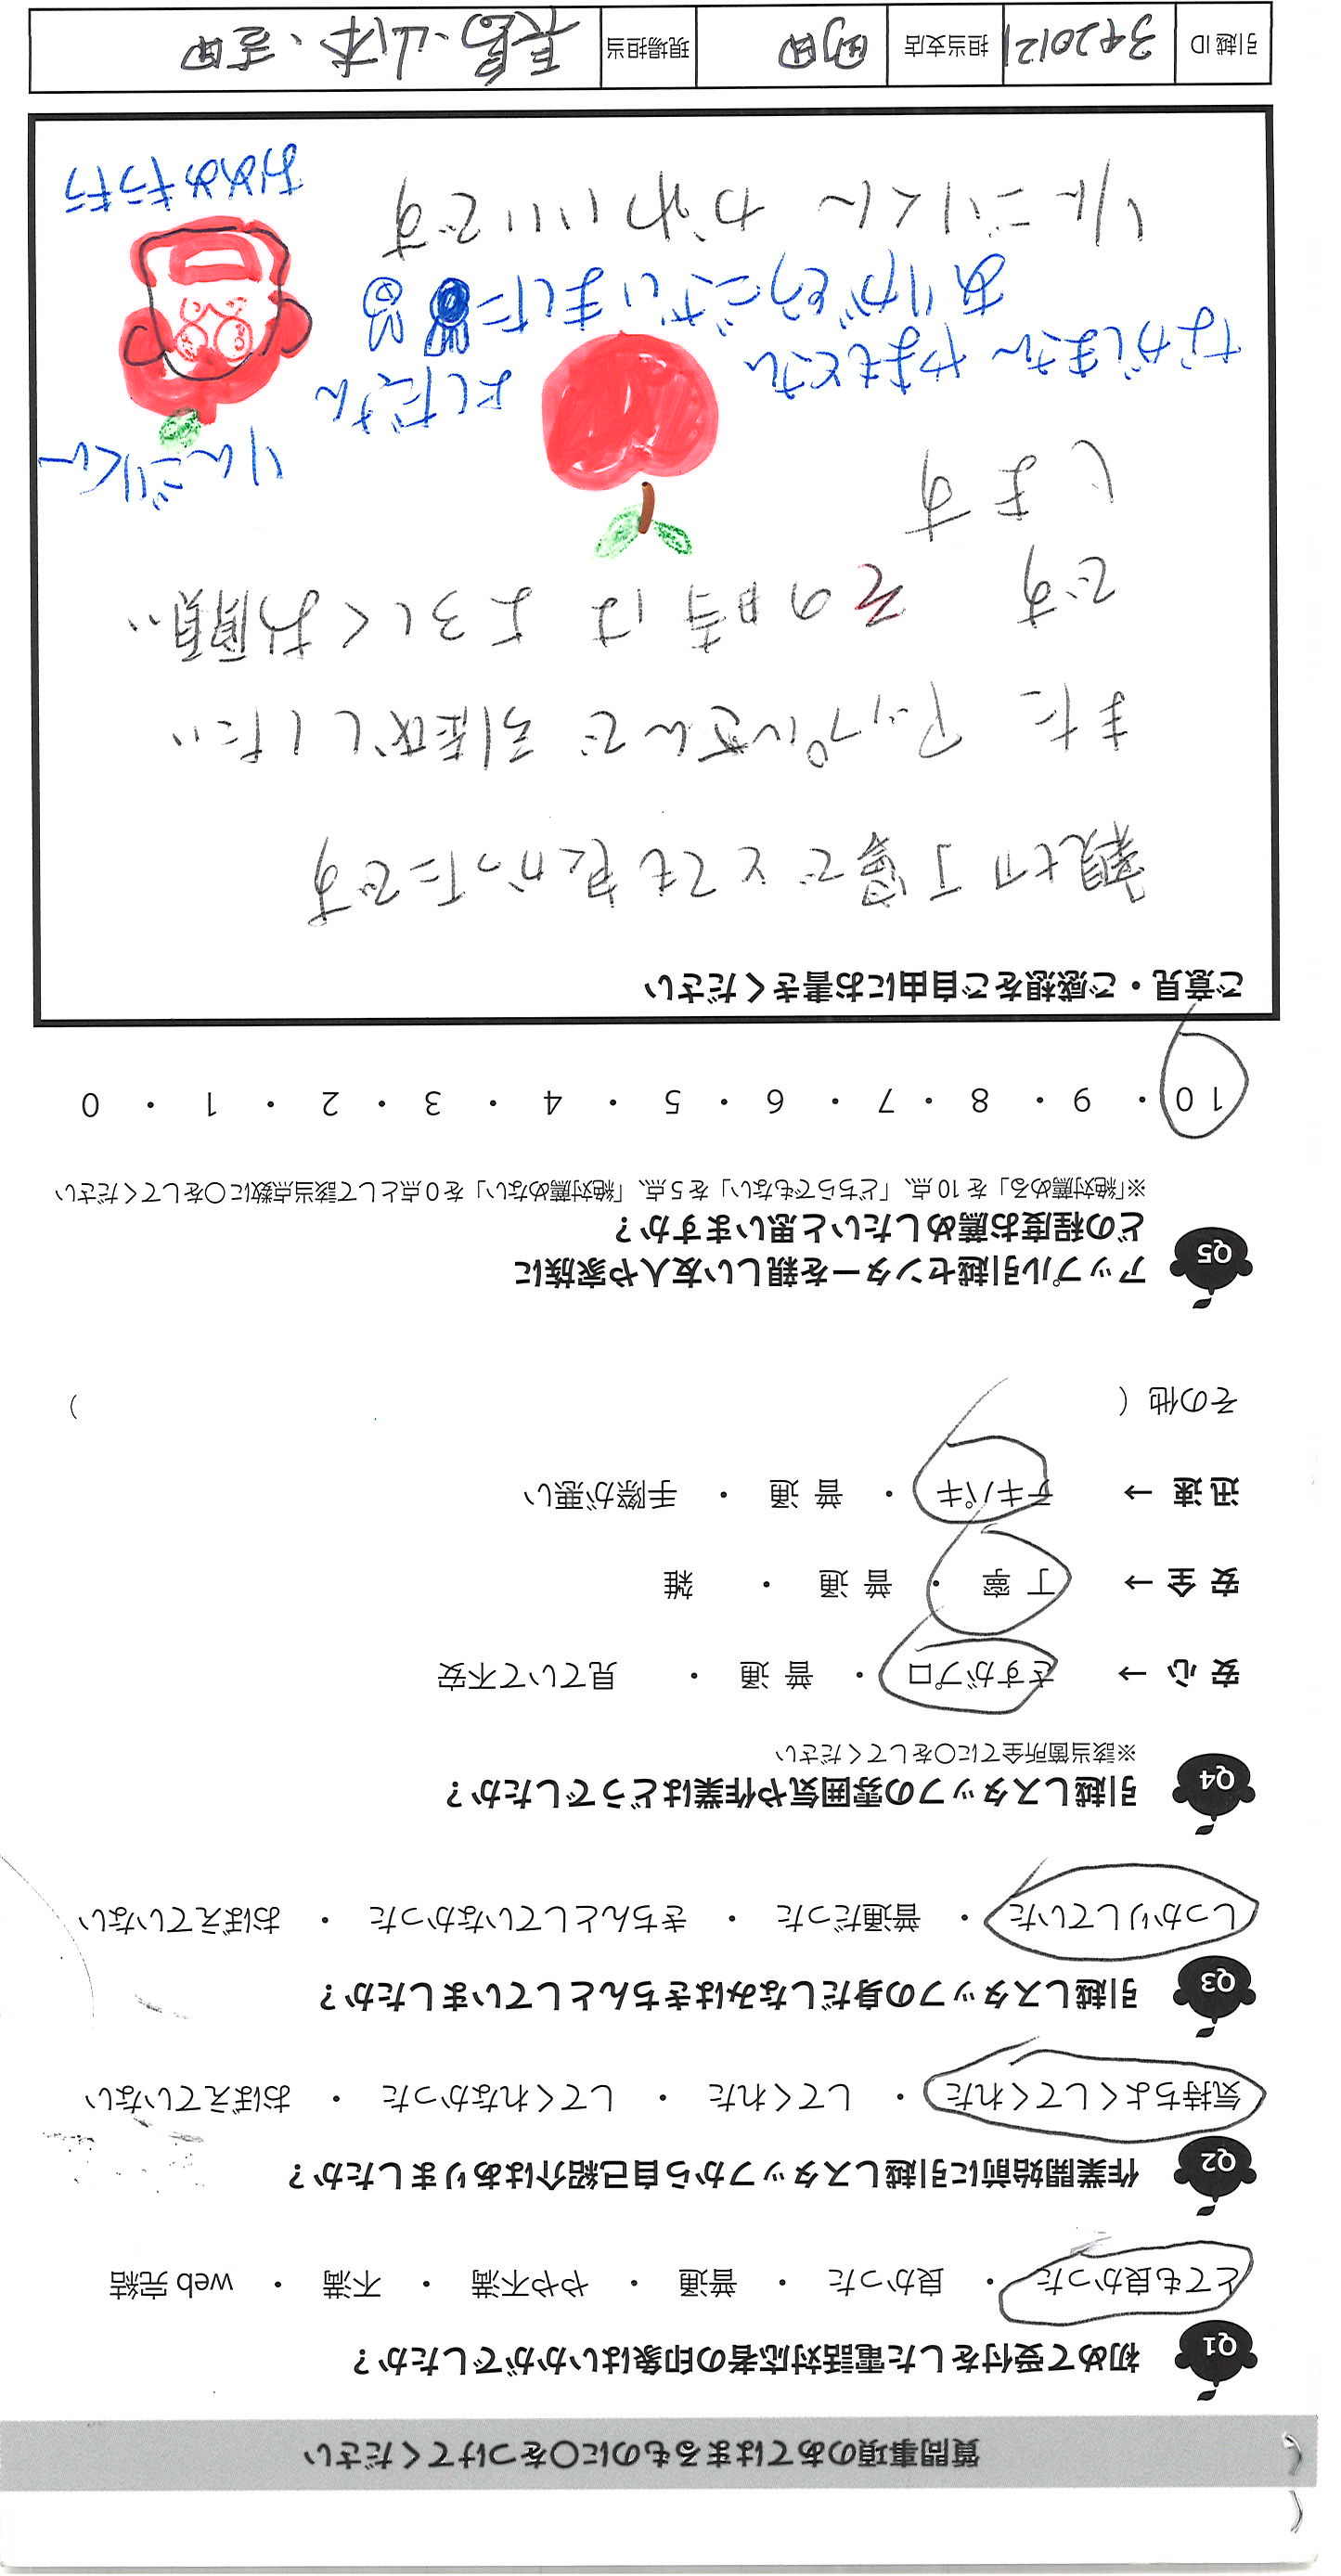 質問事項のあてはまるものに○をつけてください
Q1 初めて受付をした電話対応者の印象はいかがでしたか？
とても良かった ・ 良かった ・ 普通 ・ やや不満 ・ 不満 ・ web 完結
Q2 作業開始前に引越しスタッフから自己紹介はありましたか？
気持ちよくしてくれた ・ してくれた ・ してくれなかった ・ おぼえていない
Q3 引越しスタッフの身だしなみはきちんとしていましたか？
しっかりしていた ・ 普通だった ・ きちんとしていなかった ・ おぼえていない
Q4 引越しスタッフの雰囲気や作業はどうでしたか？
※該当箇所全てに○をしてください
安 心 → さすがプロ ・ 普 通 ・ 見ていて不安
安 全 → 丁 寧 ・ 普 通 ・ 雑
迅 速 → テキパキ ・ 普 通 ・ 手際が悪い
その他（ ）
Q5 アップル引越センターを親しい友人や家族に
どの程度お薦めしたいと思いますか？
※「絶対薦める」を 10 点、「どちらでもない」を 5 点、「絶対薦めない」を 0 点として該当点数に○をしてください
10 ・ 9 ・ 8 ・ 7 ・ 6 ・ 5 ・ 4 ・ 3 ・ 2 ・ 1 ・ 0
ご意見・ご感想をご自由にお書きください
親切丁寧でとても良かったです
また アップルさんで引越ししたい
です その時は よろしくお願い
します
りんごりくん
ながしまさん やまもとさん よしださん
ありがとうございました
りんごりくん かわいいです
おめめキラキラ
引越 ID 3420121 担当支店 町田 現場担当 長島、山本、吉田